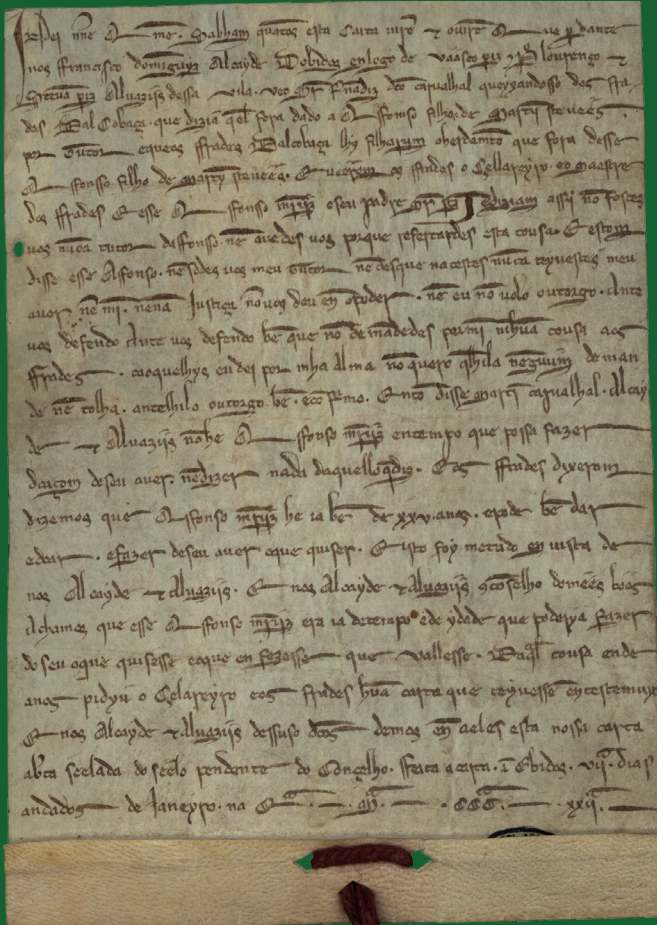 dei nne A me. Sabham quātos esta Carta virē & ouvirē Que p dante
nos ffrancisco domīguiz Alcayde Dobidos en logo de Vaāsco piz & P lourenço &
Stevā piz Aluaziis dessa vila. veo dcō carualhal queyxandosso dos fra
des Dal Cobaça. que dizia q̄l fora dado a Affonso filho. de Martī stevēes
por tutor eque os ffrades Dalcobaça lhy filharum oberdamēto que fora desse
Affonsso filho de Martỹ stevēes. E os ffrades o Cellareyro. eo Maestre
dos ffrades E esse Affonso m̄ṝiz eseu padre diziam assi nō fostes
vos nūca tutor daffonso. nē avedes vos porque refertardes esta cousa. E estom
disse esse Affonso. nē sodes vos meu tutor nē desque nacestes nūca teyvestes meu
aver nē mi. nenā Justiça nō vos deu en opoder. nē eu nō volo outorgo. Ante
vos defendo Ante vos defendo bē que nō demādedes por mi nihūa cousa aos
ffrades. caoquelhys eu dei por mha alma nō quero q̄lhila nēguum deman
de nē tolha. antelhilo outorgo bē. eco firmo. Entō disse Martī carualhal. Alcay
de & Aluaziis nō he Affonso m̄ṝiz en tempo que possa fazer
doaçom deseu aver. nē dizer nada daquello q̄ diz. E os ffrades dixerom
dizemos que Affonso m̄ṝiz he ia bē de xxv. anos. e pode bē dar
e doar. e fazer deseu aver oque quiser. E isto foy metudo en vista de
nos Alcayde & Aluaziis. E nos Alcayde & Aluaziis 9cōselho domēes boos
Achamos que esse Affonso m̄ṝiz era ia de tempo e de ydade que podorya fazer
do seu oque quisesse eoque en fezesse que vallesse. Daq̄l cousa ende
anos pidyu o Celareyro eos frades hūa carta que teyvessē en testemuyo
E nos Alcayde & Aluaziis dessuso dcōs demos en aeles esta nossa carta
abta seelada do seelo pendente do Conçelho. ffeita a carta. ī Obidos. vii. dias
andados de Janeyro. na Era. M. CCC. xxii.